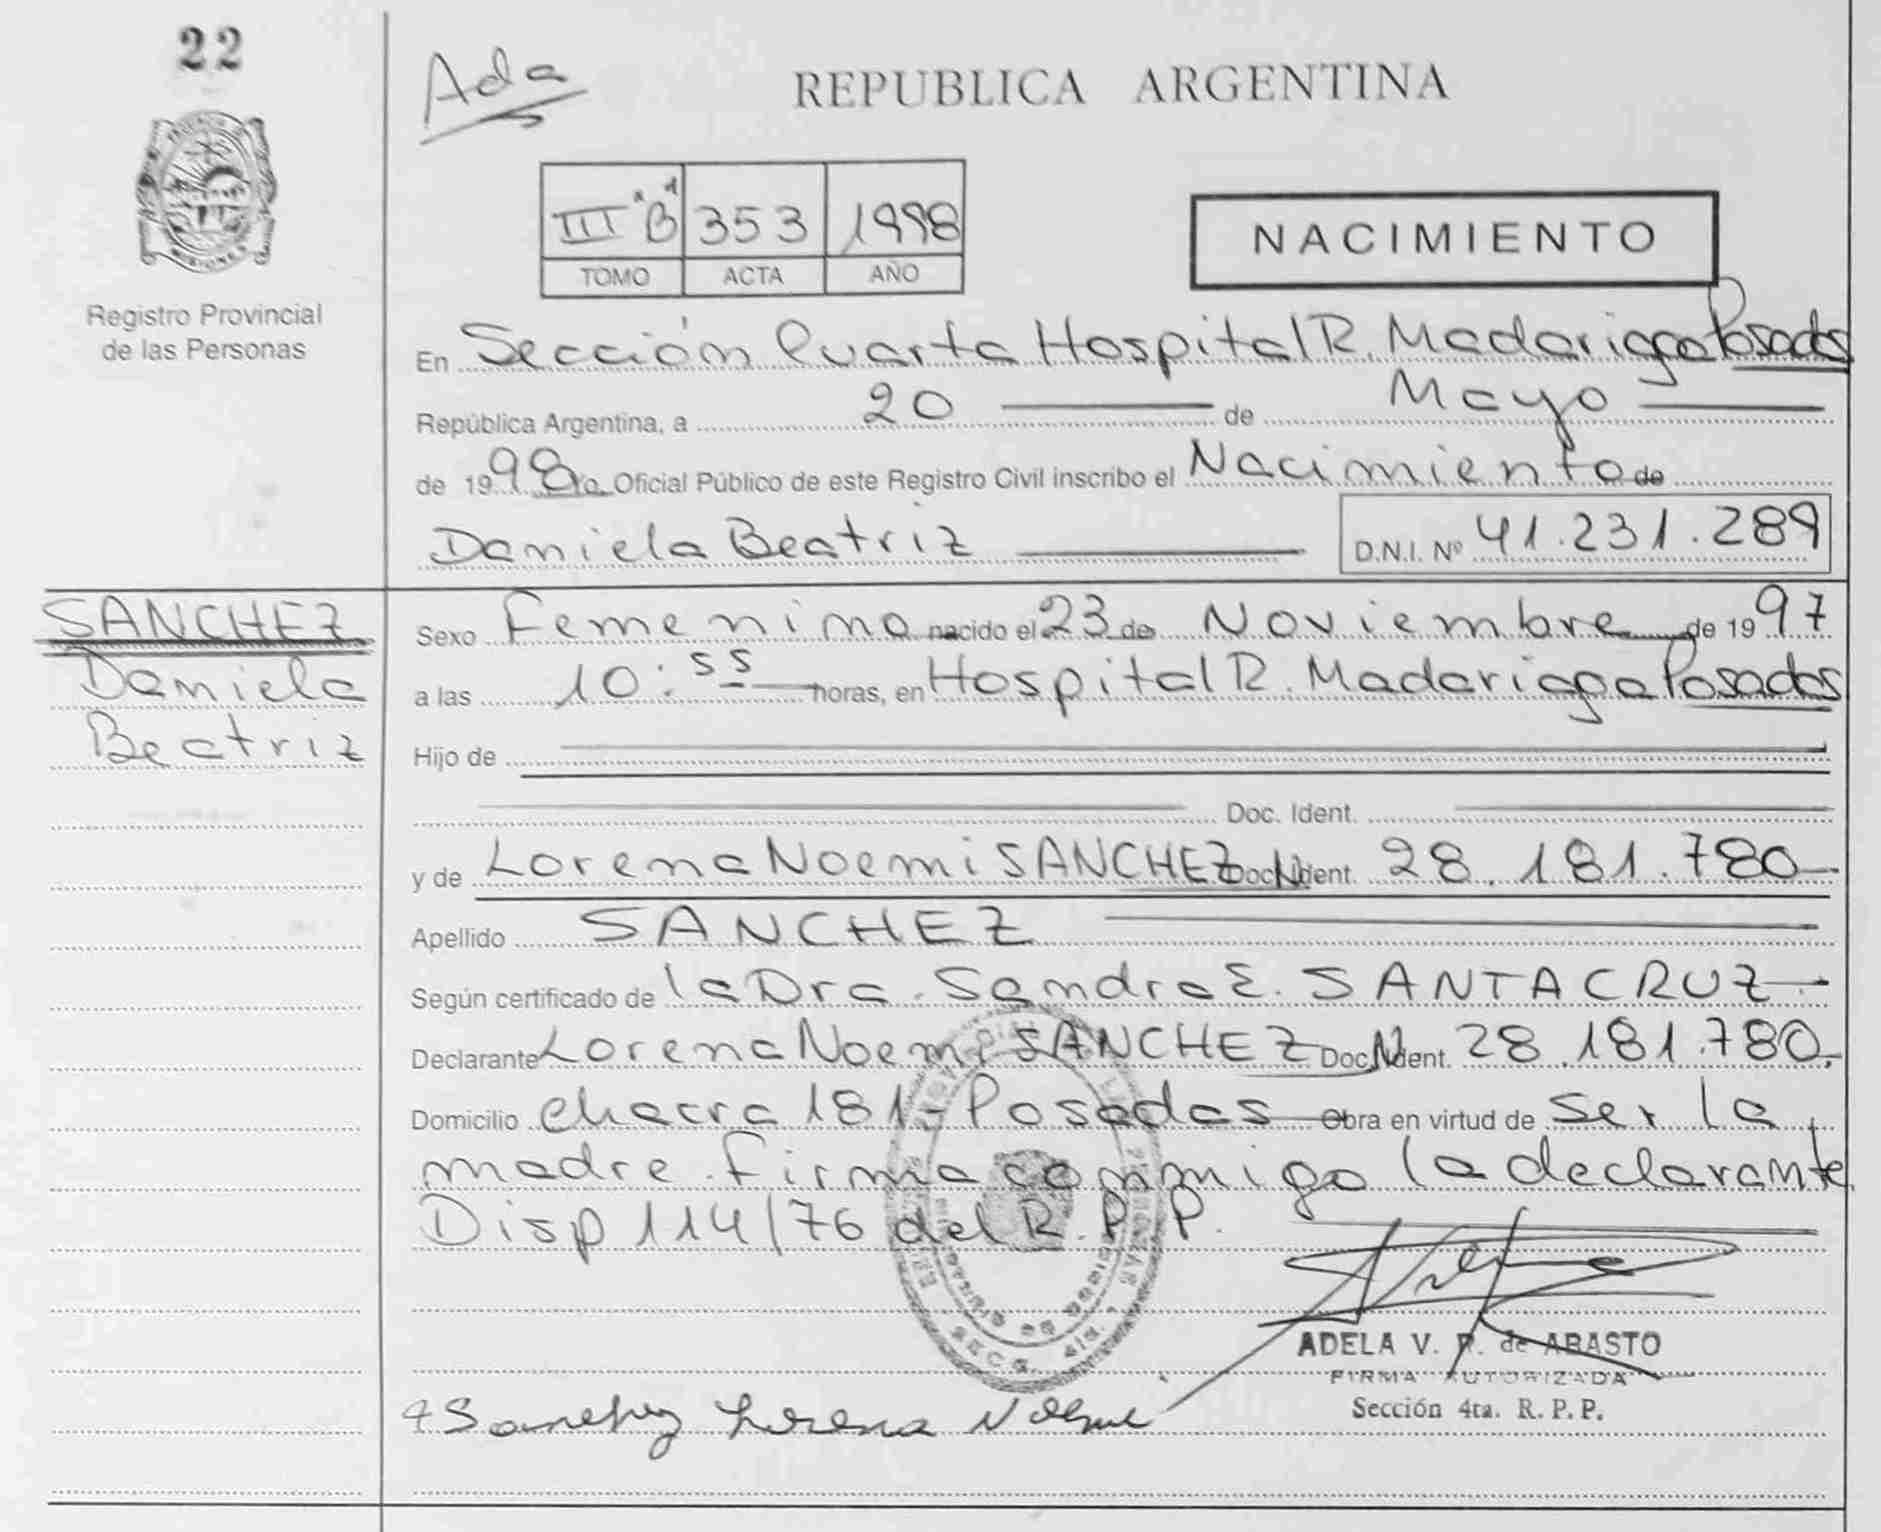 22
Ada
REPUBLICA ARGENTINA
III "B" 353 1998
TOMO ACTA AÑO
NACIMIENTO
Registro Provincial
de las Personas
En Sección Cuarta Hospital R. Madariaga Posadas
República Argentina, a 20 de Mayo
de 1998 Yo Oficial Público de este Registro Civil inscribo el Nacimiento de
Daniela Beatriz D.N.I. Nº 41.231.289
SANCHEZ
Daniela
Beatriz
Sexo Femenino nacido el 23 de Noviembre de 1997
a las 10:55 horas, en Hospital R. Madariaga Posadas
Hijo de
Doc. Ident.
y de Lorena Noemi SANCHEZ Doc. Ident. 28.181.780
Apellido SANCHEZ
Según certificado de la Dra. Sandra E. SANTACRUZ
Declarante Lorena Noemi SANCHEZ Doc. Ident. 28.181.780
Domicilio Chacra 181 - Posadas Obra en virtud de ser la
madre. Firma conmigo la declarante
Disp 114/76 del R.P.P.
ADELA V. R. de ABASTO
FIRMA AUTORIZADA
Sección 4ta. R.P.P.
Sanchez Lorena Noemi